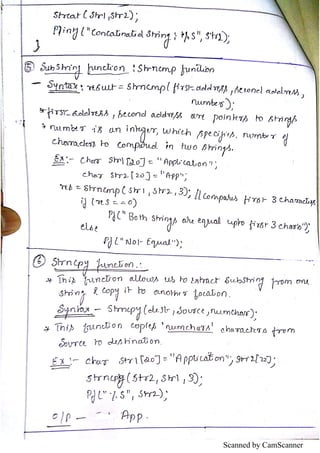 strcat (str1, str2);
Pf("Concatinatid string : %s", str1);
}
⑤ Substring function : Strncmp function
- Syntax : result = strncmp( first-address, second address,
number);
* first-address, second address are pointers to strings
* number is an integer, which specifies number of
characters to compared in two strings.
Ex :- char str1[20] = "Application";
char str2[20] = "App";
res = strncmp( str1, str2, 3); // Compares first 3 characters
if (res == 0)
Pf("Both strings are equal upto first 3 chars");
else
Pf("Not-Equal");
⑥ Strncpy function :-
* This function allows us to extract substring from one
string & copy it to another location.
Syntax - strncpy (destr, source, numchars);
* This function copies 'numchars' characters from
source to destination.
Ex :- char str1[20] = "Application"; str2[20];
strncpy (str2, str1, 3);
Pf("%s", str2);
o/p - App.
Scanned by CamScanner